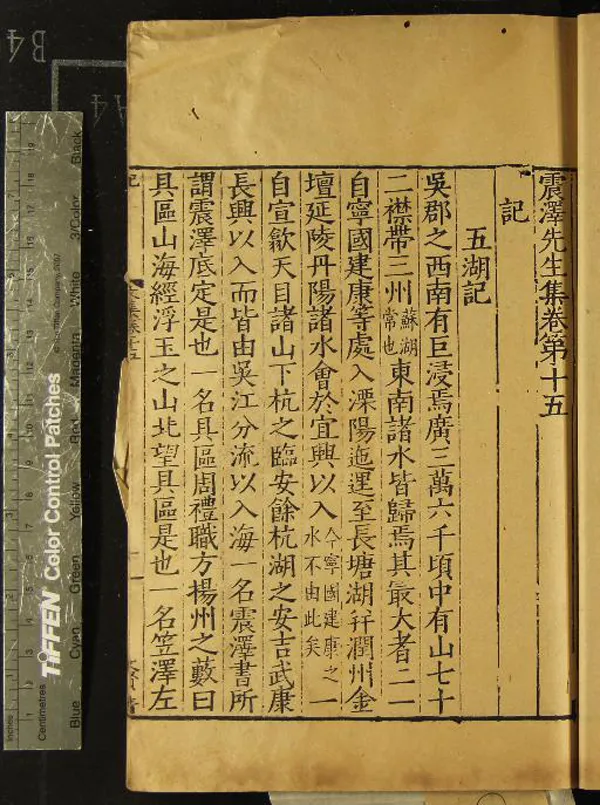 震澤先生集卷第十五
記
五湖記
吳郡之西南有巨浸焉廣三萬六千頃中有山七十
二襟帶三州蘇湖常也東南諸水皆歸焉其最大者二一
自寧國建康等處入溧陽迤邐至長塘湖幷潤州金
壇延陵丹陽諸水會於宜興以入今寧國建康之水不由此矣一
自宣歙天目諸山下杭之臨安餘杭湖之安吉武康
長興以入而皆由吳江分流以入海一名震澤書所
謂震澤底定是也一名具區周禮職方揚州之藪曰
具區山海經浮玉之山北望具區是也一名笠澤左
B4
A4
TIFFEN Color Control Patches
© The Tiffen Company, 2007
Inches
Centimetres
Blue
Cyan
Green
Yellow
Red
Magenta
White
3/Color
Black